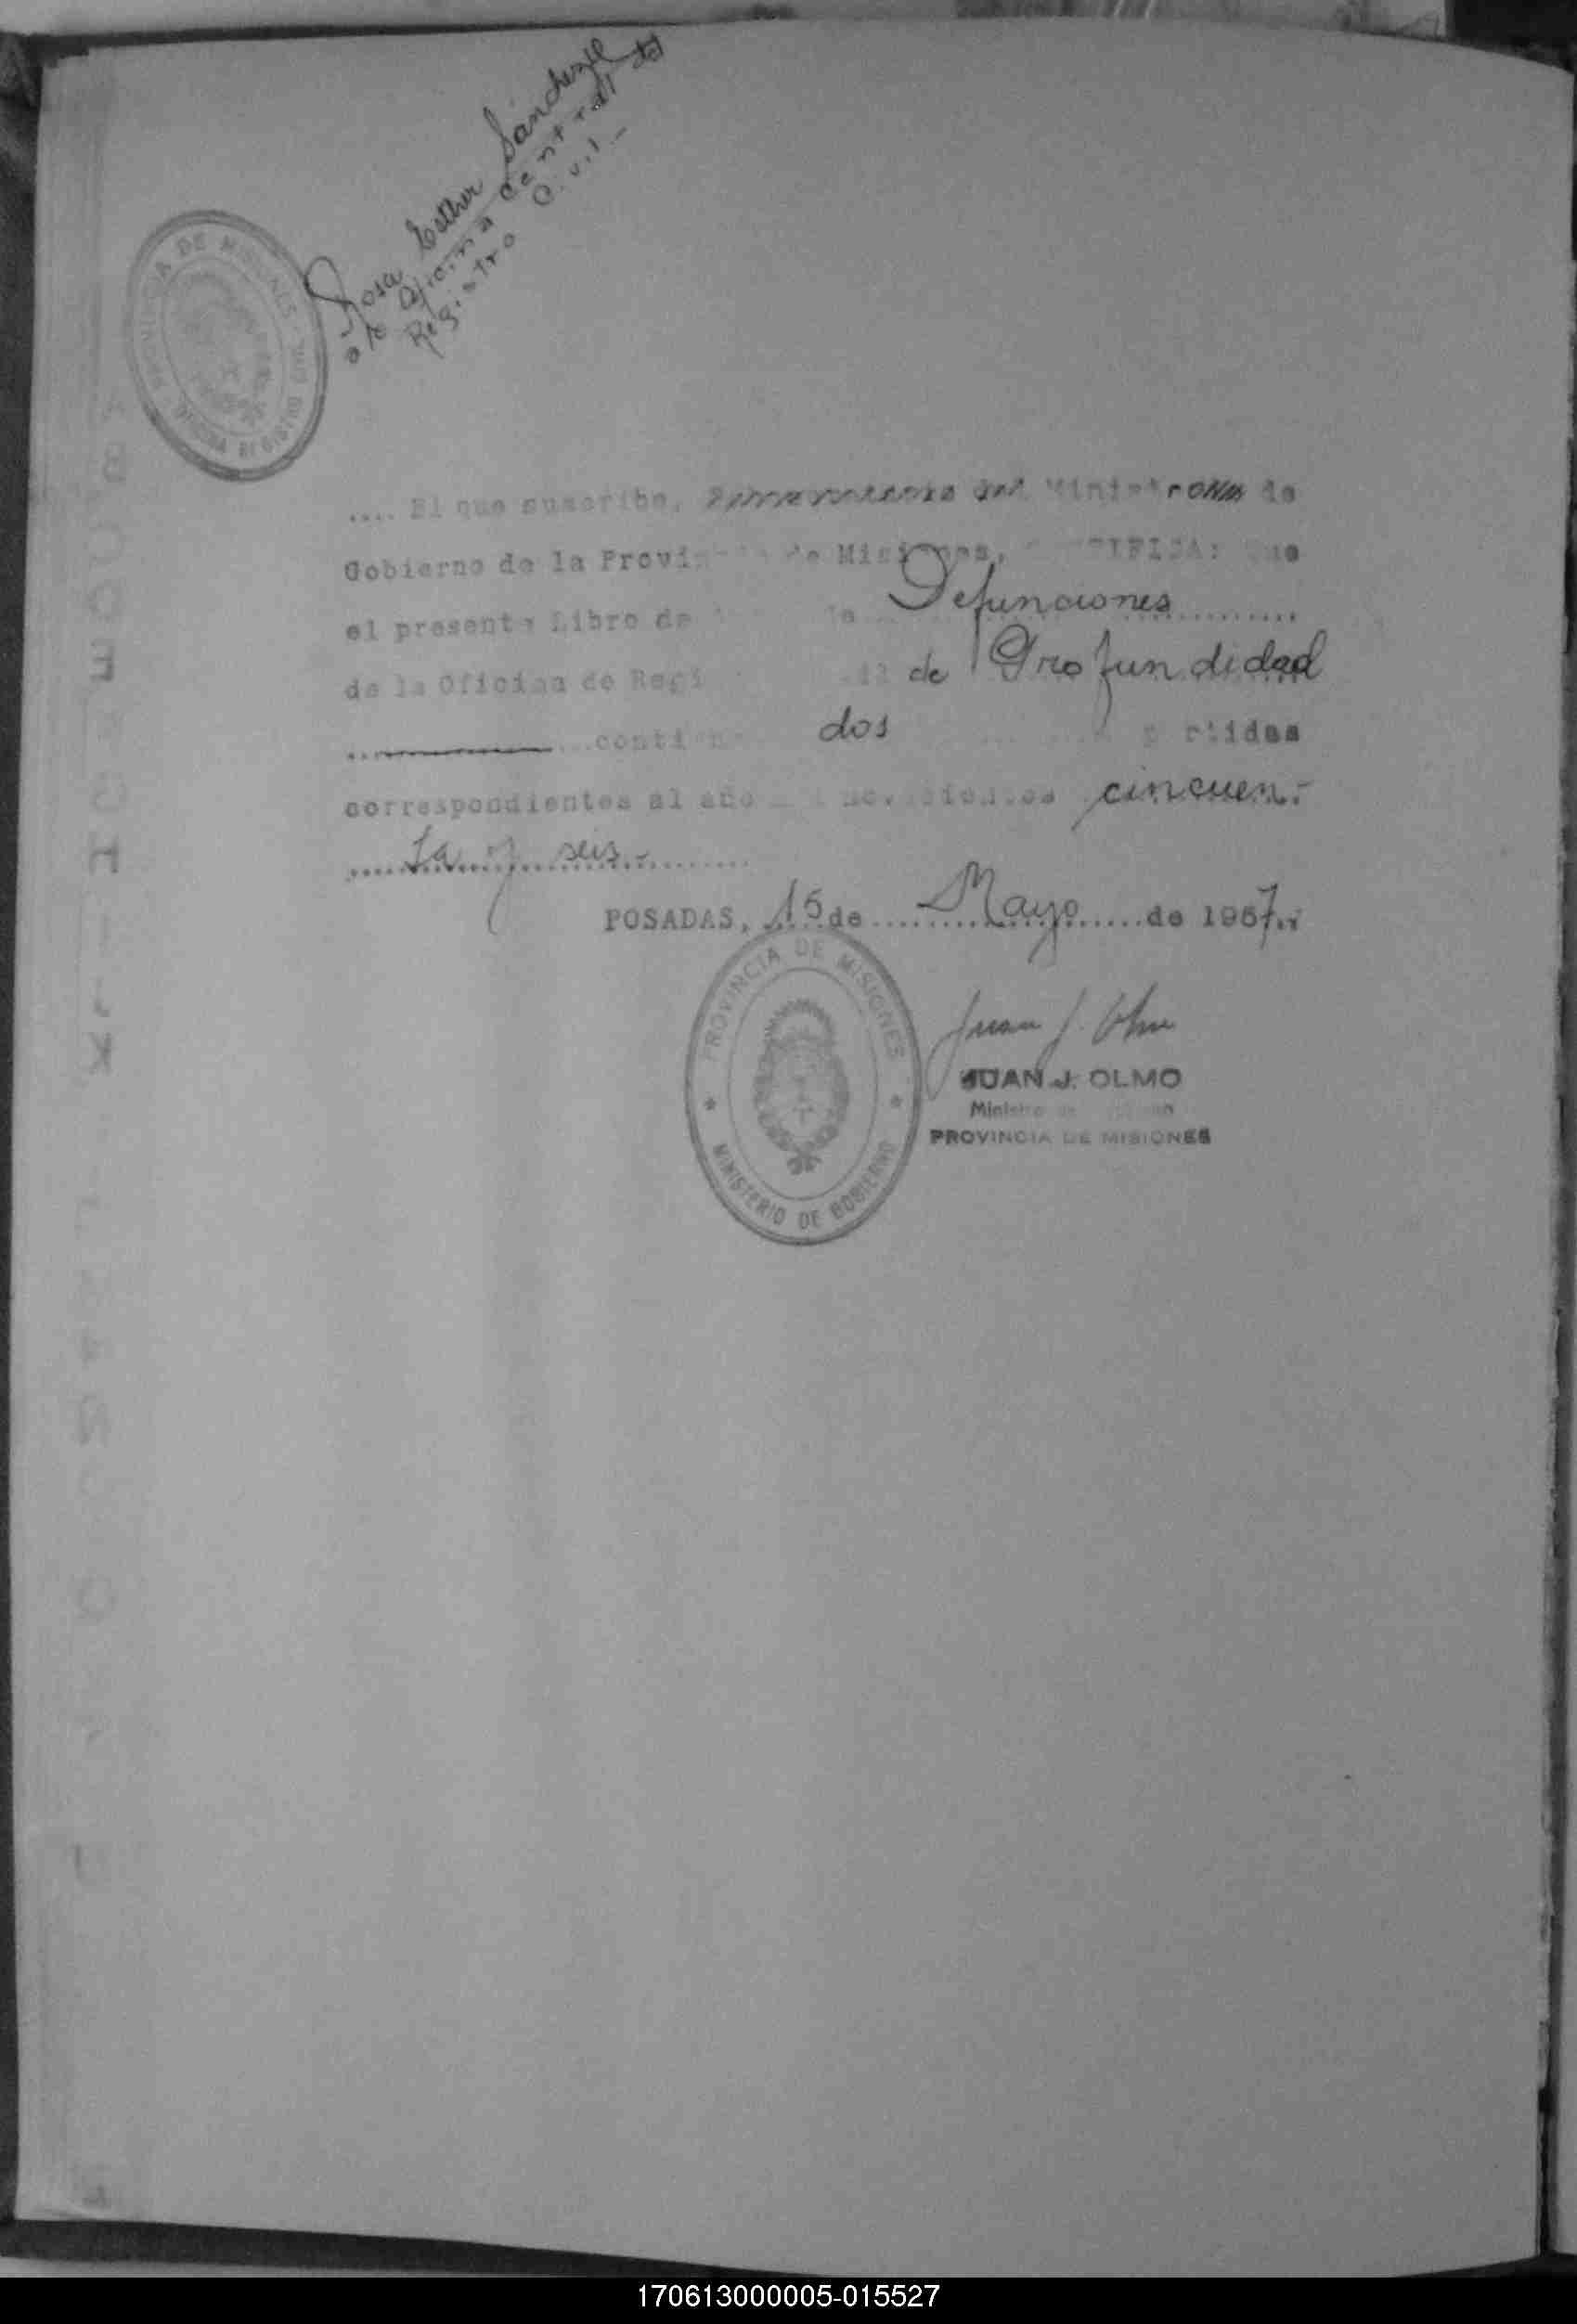 Rosa Esther Sánchez
a/c Oficina Central del
Registro Civil
PROVINCIA DE MISIONES
OFICINA REGISTRO CIVIL
.... El que suscribe, Ministro de
Gobierno de la Provincia de Misiones, CERTIFICA: Que
el presente Libro de Defunciones
de la Oficina de de Profundidad
contiene dos partidas
correspondientes al año mil novecientos cincuen-
ta y seis-
POSADAS, 15 de Mayo de 1957.
PROVINCIA DE MISIONES
MINISTERIO DE GOBIERNO
Juan J. Olmo
JUAN J. OLMO
Ministro
PROVINCIA DE MISIONES
170613000005-015527